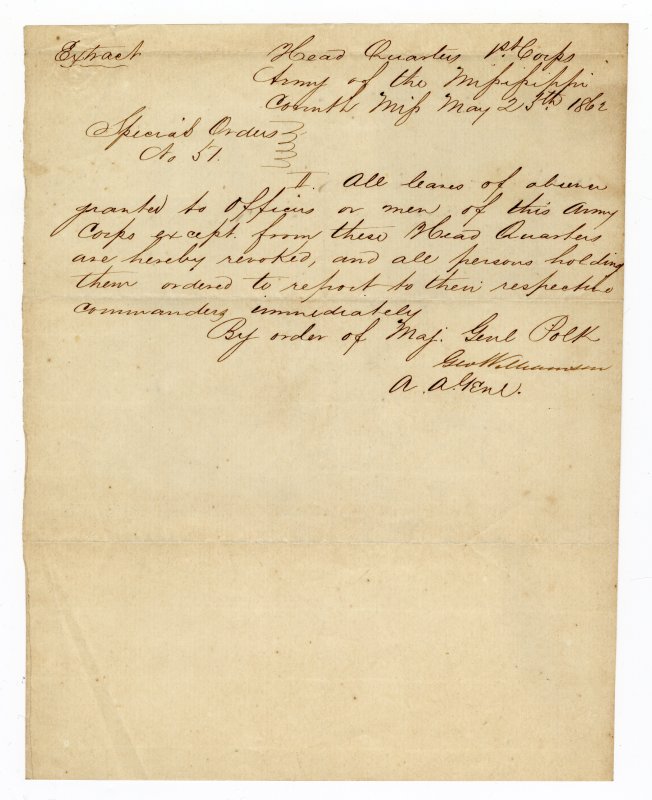 Extract
Head Quarters 1st Corps
Army of the Mississippi
Corinth Miss May 25th 1862
Special Orders
No 51.
I. All leaves of absence
granted to officers or men of this Army
Corps except from these Head Quarters
are hereby revoked, and all persons holding
them ordered to report to their respective
commanders immediately
By order of Maj. Genl Polk
Geo Williamson
A. A. Genl.